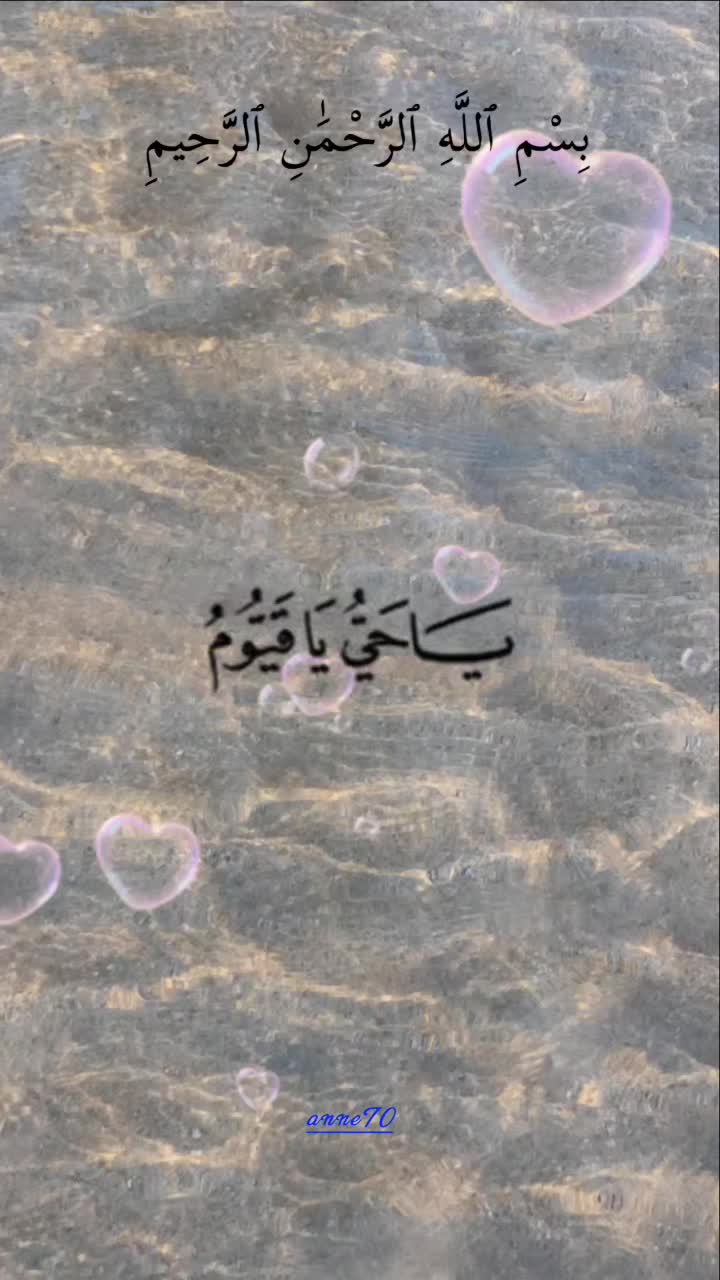 بِسْمِ ٱللَّهِ ٱلرَّحْمَٰنِ ٱلرَّحِيمِ
يَاحَيُّ يَا قَيُّومُ
anne70